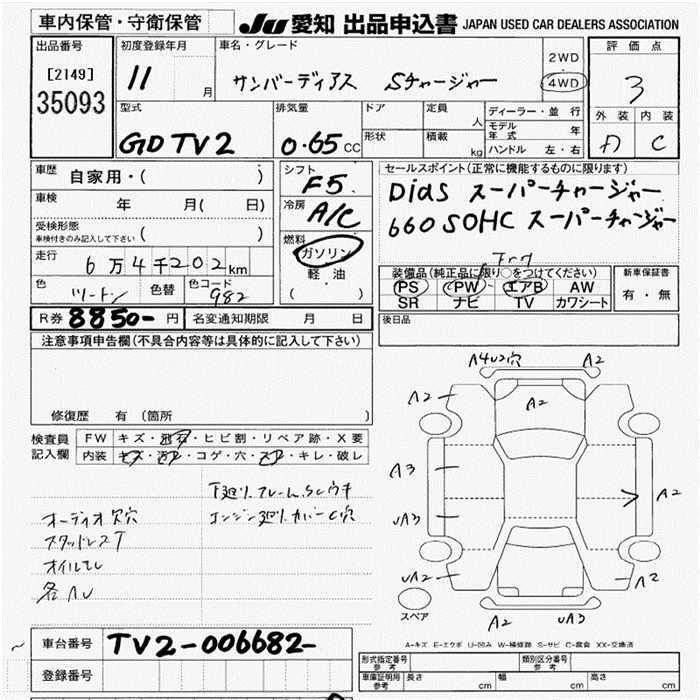 車内保管・守衛保管
JU 愛知 出品申込書 JAPAN USED CAR DEALERS ASSOCIATION
出品番号
[2149]
35093
初度登録年月
11 月
車名・グレード
サンバーディアス Sチャージャー
2WD
4WD
評価点
3
外装 内装
A C
型式
GD TV2
排気量
0.65 CC
ドア
形状
定員 人
積載 kg
ディーラー・並行
モデル年式 年
ハンドル 左・右
車歴
自家用・( )
車検 年 月( 日)
受検形態
車検付きのみ記入して下さい ( )
走行
6万4千202km
色 ツートン 色替 色コード 982
シフト
F5
冷房
A/C
燃料
ガソリン
軽油
( )
セールスポイント(正常に機能するものに限ります)
Dias スーパーチャージャー
660 SOHC スーパーチャージャー
装備品(純正品に限り○をつけてください)
PS PW エアB AW
SR ナビ TV カワシート
新車保証書
有・無
R券 8850- 円 名変通知期限 月 日
後日品
注意事項申告欄(不具合内容等は具体的に記入して下さい)
修復歴 有(箇所 )
検査員記入欄
FW キズ・飛石・ヒビ割・リペア跡・X要
内装 キズ・汚レ・コゲ・穴・スレ・キレ・破レ
下廻リ フレーム SCウキ
エンジン廻リ カバーC穴
オーディオ欠穴
スタッドレスT
オイルモレ
各AU
A4U2穴 A2
A2 A2
A3 A2
UA3
UA2 A2
スペア
A2 UA3
A-キズ E-エクボ U-凹み W-補修跡 S-サビ C-腐食 XX-交換済
車台番号 TV2-006682-
登録番号
形式指定番号 参考 類別区分番号 参考
車庫証明用 参考 長さ cm 幅 cm 高さ cm